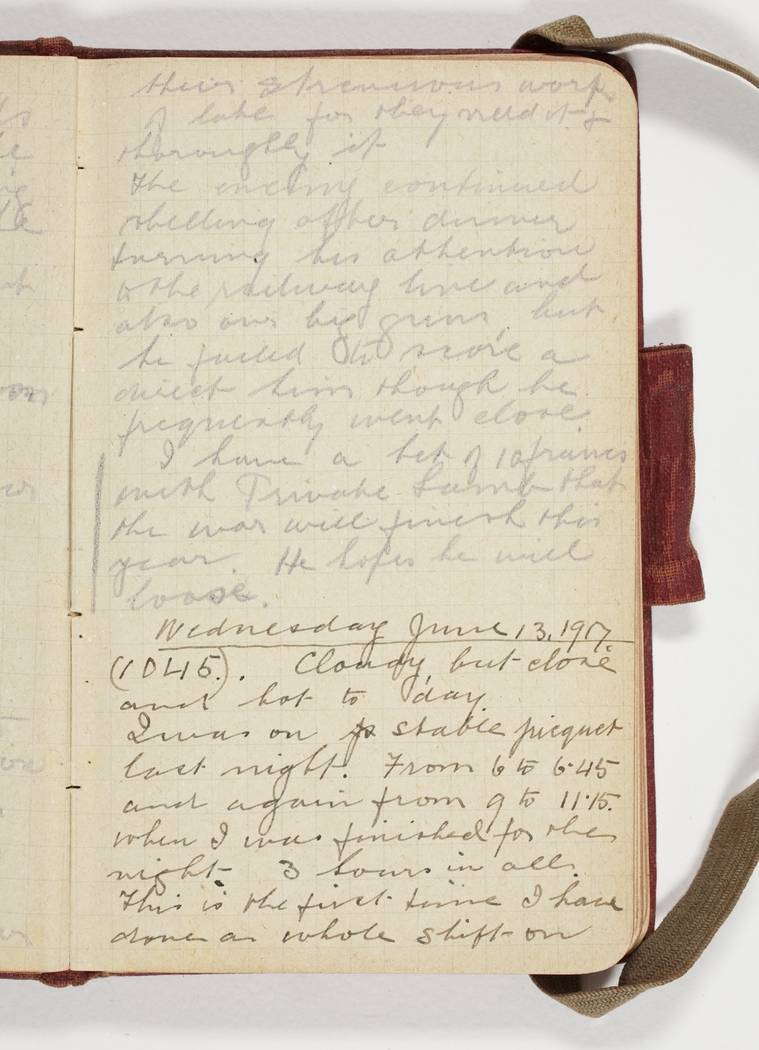 their strenuous work
of late for they need it &
thoroughly it
The enemy continued
shelling after dinner
turning his attention
to the railway line and
also our big guns, but
he failed to score a
direct him though he
frequently went close.
I have a bet of 10 francs
with Private Lamb that
the war will finish this
year. He hopes he will
loose.
Wednesday June 13, 1917.
(1045). Cloudy but close
and hot to day
I was on stable picquet
last night. From 6 to 6.45
and again from 9 to 11.15.
when I was finished for the
night 3 hours in all.
This is the first time I have
done a whole shift on